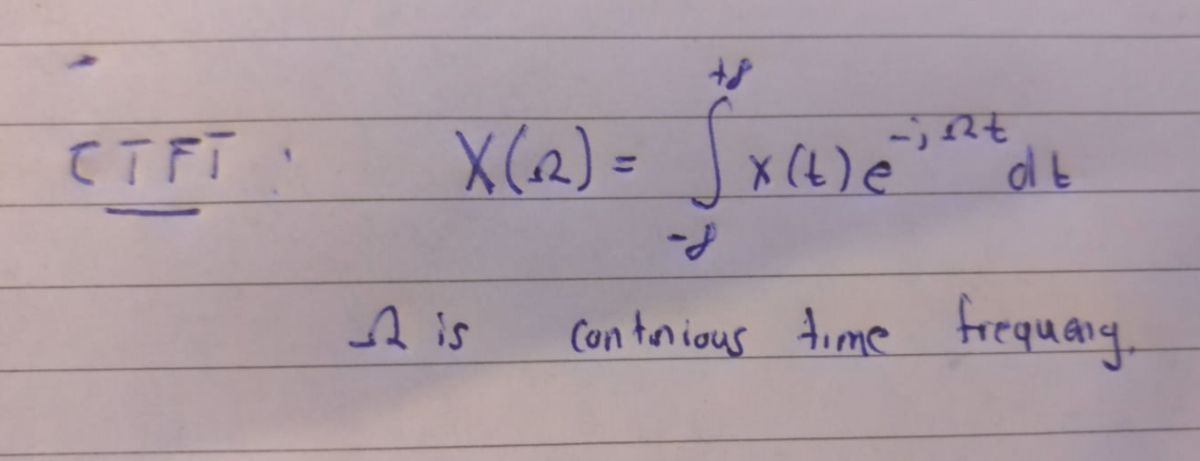 CTFT : X(Ω) = ∫_{-∞}^{+∞} x(t) e^{-jΩt} dt
Ω is contnious time frequency.